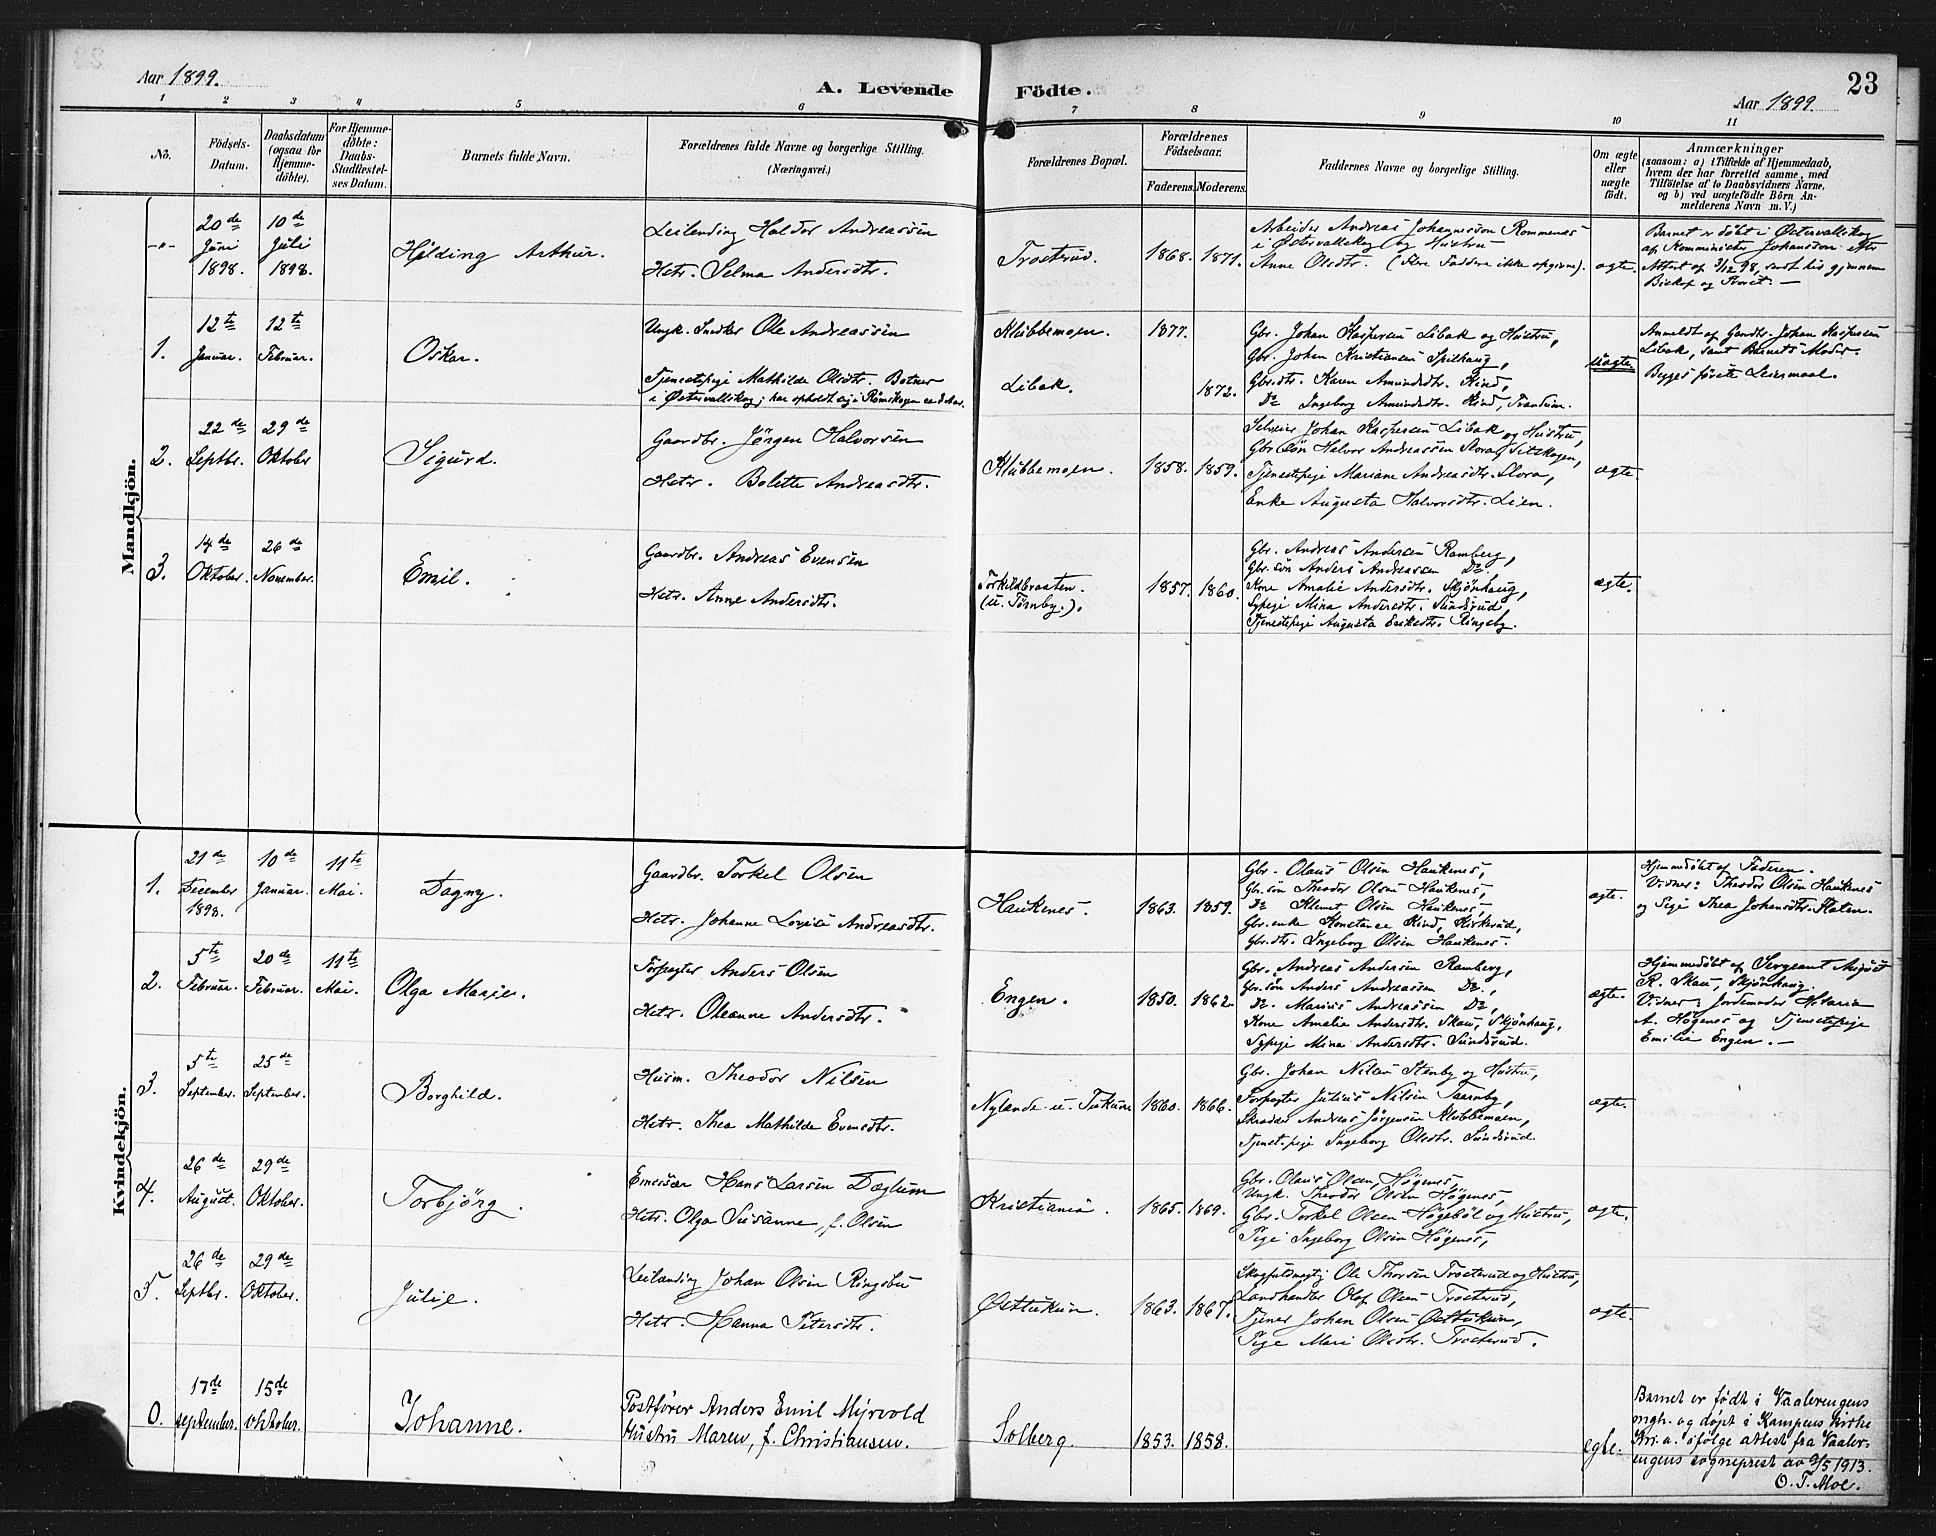 Aar 1899.
A. Levende Födte.
Aar 1899.
23
1 2 3 4 5 6 7 8 9 10 11
No.
Födsels-
Datum.
Daabsdatum
(ogsaa for
Hjemme-
döbte).
For Hjemme-
döbte:
Daabs-
Stadfæstel-
ses Datum.
Barnets fulde Navn.
Forældrenes fulde Navne og borgerlige Stilling.
(Næringsvei.)
Forældrenes Bopæl.
Forældrenes
Födselsaar.
Faderens. Moderens.
Faddernes Navne og borgerlige Stilling.
Om ægte
eller
uægte
födt.
Anmærkninger
(saasom: a) i Tilfælde af Hjemmedaab,
hvem der har forrettet samme, med
Tilföielse af to Daabsvidners Navne,
og b) ved uægtefödte Börn An-
melderens Navn m. V.)
Mandkjön.
-"-
20de
Juni
1898.
10de
Juli
1898.
Hilding Arthur.
Leilending Haldor Andreassen
Hstr. Selma Andersdtr.
Trosterud.
1868. 1871.
Arbeider Andreas Johannesson Rommenäs
i Östervallskog og Hustru
Anne Olsdtr. (flere Faddere ikke opgivne).
ægte.
Barnet er döbt i Östervallskog
af Komminister Johansson efter
Attest af 3/12 98, sendt hid gjennem
Biskop og Provst. —
1.
12te
Januar.
12te
Februar.
Oskar.
Ungk. Snedker Ole Andreassen
Tjenestepige Mathilde Olsdtr. Botner
i Östervallskog; har opholdt sig i Römskogen ca 2 Aar.
Klubbemoen.
Libak.
1877.
1872.
Gbr. Johan Kaspersen Libak og Hustru,
Gbr. Johan Kristiansen Spilhaug,
Gbr.dtr. Karen Amundsdtr. Kind,
Do Ingeborg Amundsdtr. Kind, Trandum.
uægte.
Anmeldt af Gaardbr. Johan Kaspersen
Libak, samt Barnets Moder.
Begges förste Leiermaal.
2.
22de
Septbr.
29de
Oktober
Sigurd.
Gaardbr. Jörgen Halvorsen
Hstr. Bolette Andreasdtr.
Klubbemoen.
1858. 1859.
Johan Kaspersen Libak og Hustru,
Gbr.sön Halvor Andreassen Slora, Setskogen,
Tjenestepige Mariane Andreasdtr. Slora,
Enke Augusta Halvorsdtr. Lien.
ægte.
3.
14de
Oktober.
26de
November.
Emil.
Gaardbr. Andreas Evensen
Hstr. Anne Andersdtr.
Torkildbraaten.
(u. Tørnby.).
1857. 1860.
Gbr. Andreas Andersen Ramberg,
Gbr.sön Anders Andreassen Do.
Kone Amalie Andersdtr. Skjönhaug,
Sypige Mina Andersdtr. Sundsrud,
Tjenestepige Augusta Eriksdtr. Ringsby.
ægte.
Kvindekjön.
1.
21de
December
1898.
10de
Januar.
11te
Mai.
Dagny.
Gaardbr. Torkel Olsen
Hstr. Johanne Lovise Andreasdtr.
Haukenes.
1863. 1859.
Gbr. Olaus Olsen Haukenes,
Gbr.sön Theodor Olsen Haukenes,
Do Klemet Olsen Haukenes,
Gbr.enke Konstance Kind, Kirkerud,
Gbr.dtr. Ingeborg Olsen Haukenes.
ægte.
Hjemmedöbt af Faderen.
Vidner: Theodor Olsen Haukenes
og Pige Thea Johansdtr. Flaten.
2.
5te
Februar.
20de
Februar.
11te
Mai.
Olga Marie.
Forpagter Anders Olsen
Hstr. Oleanne Andersdtr.
Engen.
1850. 1862.
Gbr. Andreas Andersen Ramberg,
Gbr.sön Anders Andreassen Do.,
Do. Marius Andreassen Do,
Kone Amalie Andersdtr. Skau, Skjönhaug,
Sypige Mina Andersdtr. Sundsrud.
ægte.
Hjemmedöbt af Sergeant August
R. Skau, Skjönhaug.
Vidner: Jordemoder Maria
A. Högenes og Tjenestepige
Emilie Engen. —
3.
5te
September.
25de
September.
Borghild.
Husm. Theodor Nilsen
Hstr. Thea Mathilde Evensdtr.
Nylende u. Tukune
1860. 1866.
Gbr. Johan Nilsen Stenby og Hustru,
Forpagter Julius Nilsen Taarnby,
Skrædder Andreas Jörgensen Klubbemoen,
Tjenst.pige Ingeborg Olsdtr. Sundsrud.
ægte.
4.
26de
August.
29de
Oktober.
Torbjörg.
Hans Larsen Døglum
Hstr. Olga Susanne, f. Olsen
Kristiania.
1865. 1869.
Gbr. Olaus Olsen, Högenes,
Ungk. Theodor Olsen Högenes,
Gbr. Torkel Olsen Högeböl og Hustru,
Pige Ingeborg Olsen Högenes,
ægte.
5.
26de
Septbr.
29de
Oktober.
Julie.
Leilending Johan Olsen Ringsbu
Hstr. Hanna Petersdtr.
Østtukun.
1863. 1867.
Skogfuldmægtig Ole Thorsen Trosterud og Hustru,
Landhandler Olof Olsen Trosterud,
Tjener Johan Olsen Østtukun,
Pige Mari Olsdtr. Trosterud.
ægte.
0.
17de
september.
15de
oktober.
Johanne.
Postfører Anders Emil Myrvold
Hustru Maren, f. Christiansen.
Solberg.
1853. 1858.
egte.
Barnet er født i Vaalerengens
mgh. og døpt i Kampens kirke
Kri.a. ifølge attest fra Vaaler-
engens sogneprest av 9/5 1913.
O. T. Moe.